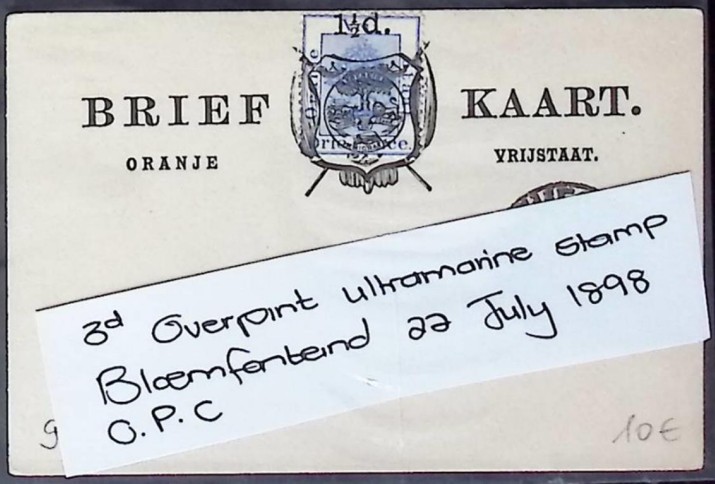 1½d.
BRIEF KAART.
ORANJE VRIJSTAAT.
3d Overpint ultramarine stamp
Bloemfonteind 22 July 1898
O.P.C
9
10€